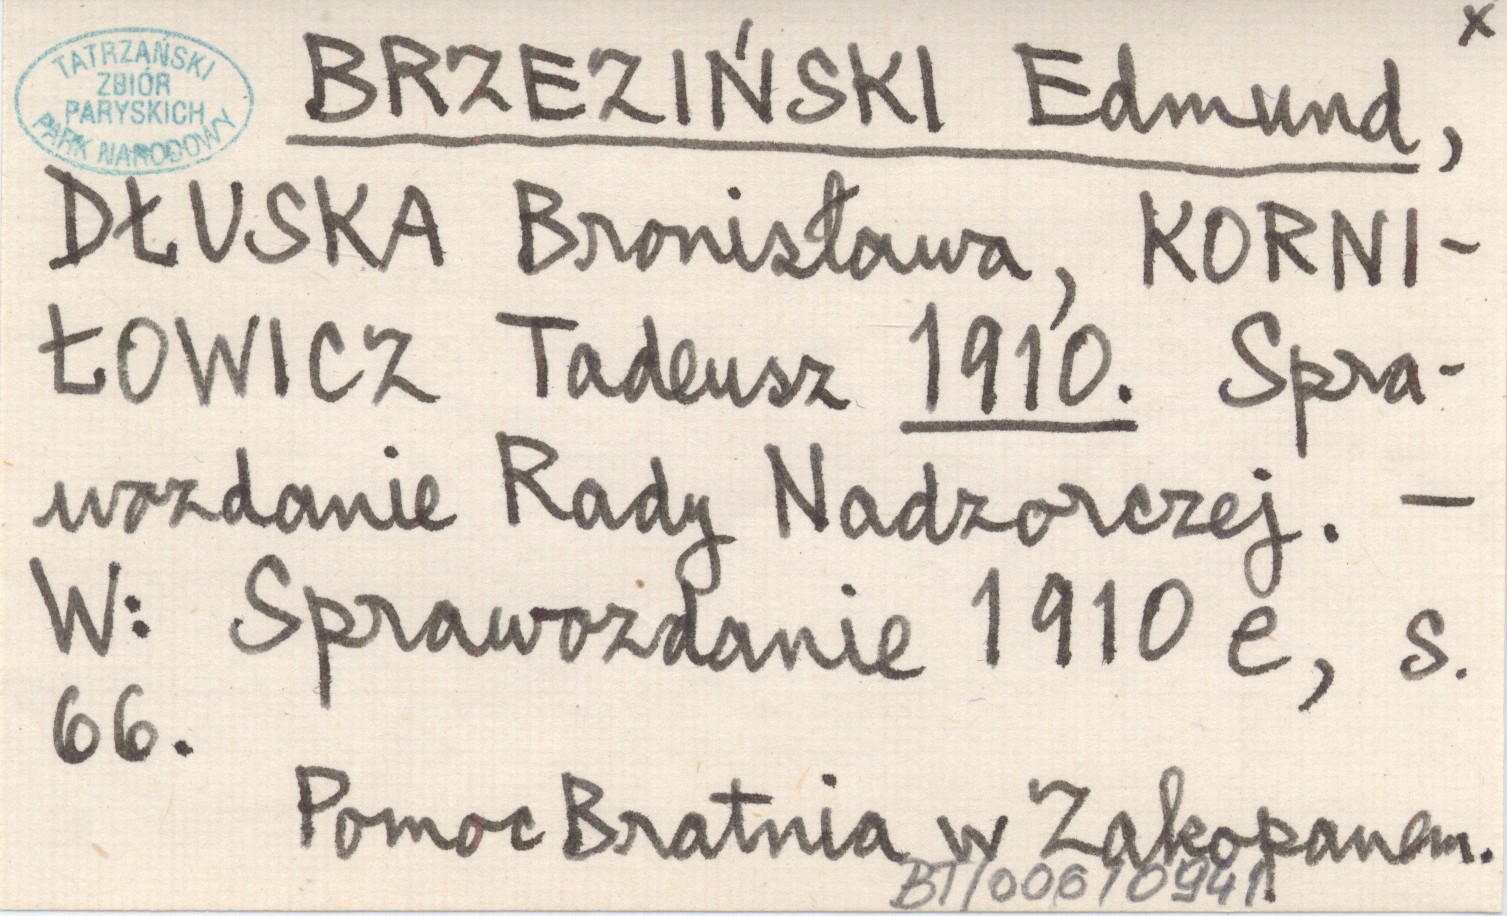 x
TATRZAŃSKI
ZBIÓR
PARYSKICH
PARK NARODOWY
BRZEZIŃSKI Edmund,
DŁUSKA Bronisława, KORNI-
ŁOWICZ Tadeusz 1910. Spra-
wozdanie Rady Nadzorczej. —
W: Sprawozdanie 1910 e, s.
66.
Pomoc Bratnia w Zakopanem.
BT/00610941